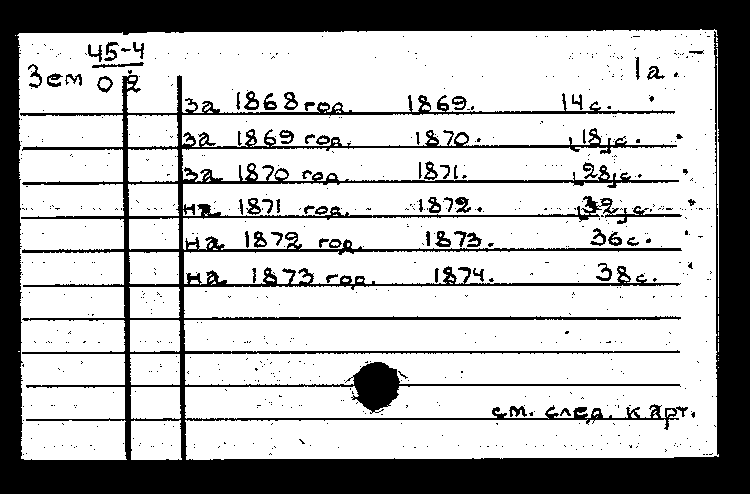 45-4
Зем 02 1а.
за 1868 год. 1869. 14 с.
за 1869 год. 1870. [18] с.
за 1870 год. 1871. [28] с.
на 1871 год. 1872. [32] с.
на 1872 год. 1873. 36 с.
на 1873 год. 1874. 38 с.
см. след. карт.